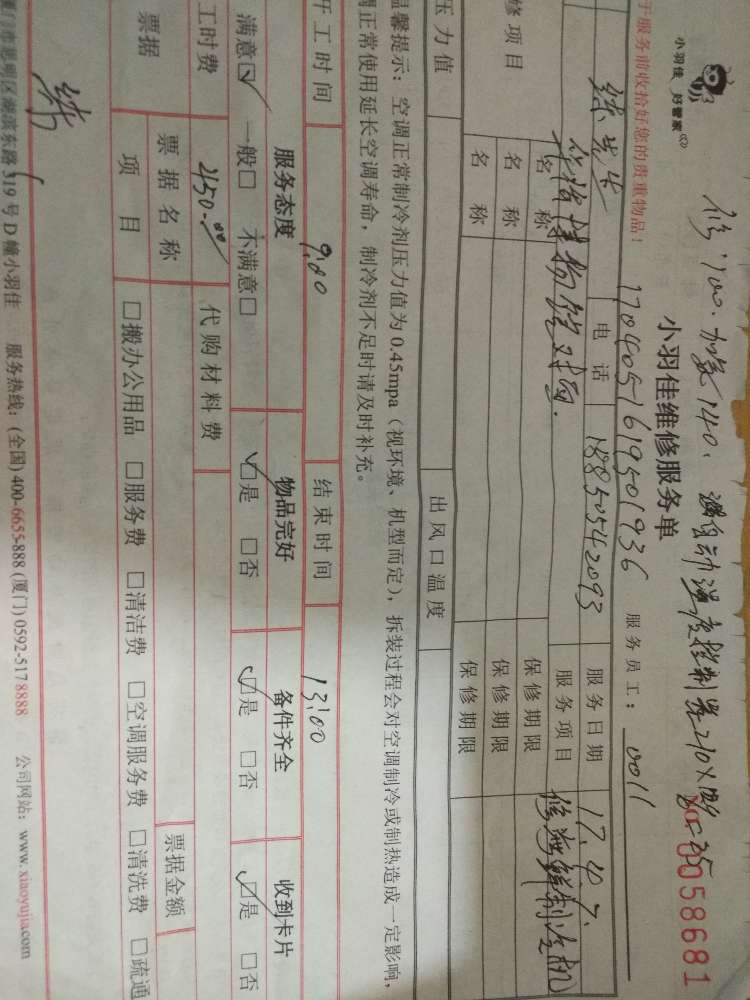 修:100. 加氨140.
小羽佳 好管家
小羽佳维修服务单
0058681
于服务前收拾好您的贵重物品!
1704051619501936 服务员工: 0011
电话 18850542093 服务日期 17.
华侨博物馆对面. 服务项目 修海鲜制冷机
修项目 名称 保修期限
名称 保修期限
名称 保修期限
压力值 出风口温度
温馨提示: 空调正常制冷剂压力值为 0.45mpa (视环境、机型而定), 拆装过程会对空调制冷或制热造成一定影响,
调正常使用延长空调寿命, 制冷剂不足时请及时补充。
开工时间 9:00 结束时间 13:00
服务态度 物品完好 备件齐全 收到卡片
满意☑ 一般□ 不满意□ ☑是 □否 ☑是 □否 ☑是 □否
工时费 2150.00 代购材料费
票据 票据名称 票据金额
项目 □搬办公用品 □服务费 □清洁费 □空调服务费 □清洗费 □疏通
厦门市思明区湖滨东路 319 号 D 幢小羽佳 服务热线: (全国) 400-6655-888 (厦门) 0592-517 8888 公司网站: www.xiaoyujia.com